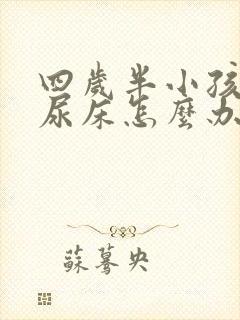 四歲半小孩
尿床怎麼办
蘇驀央